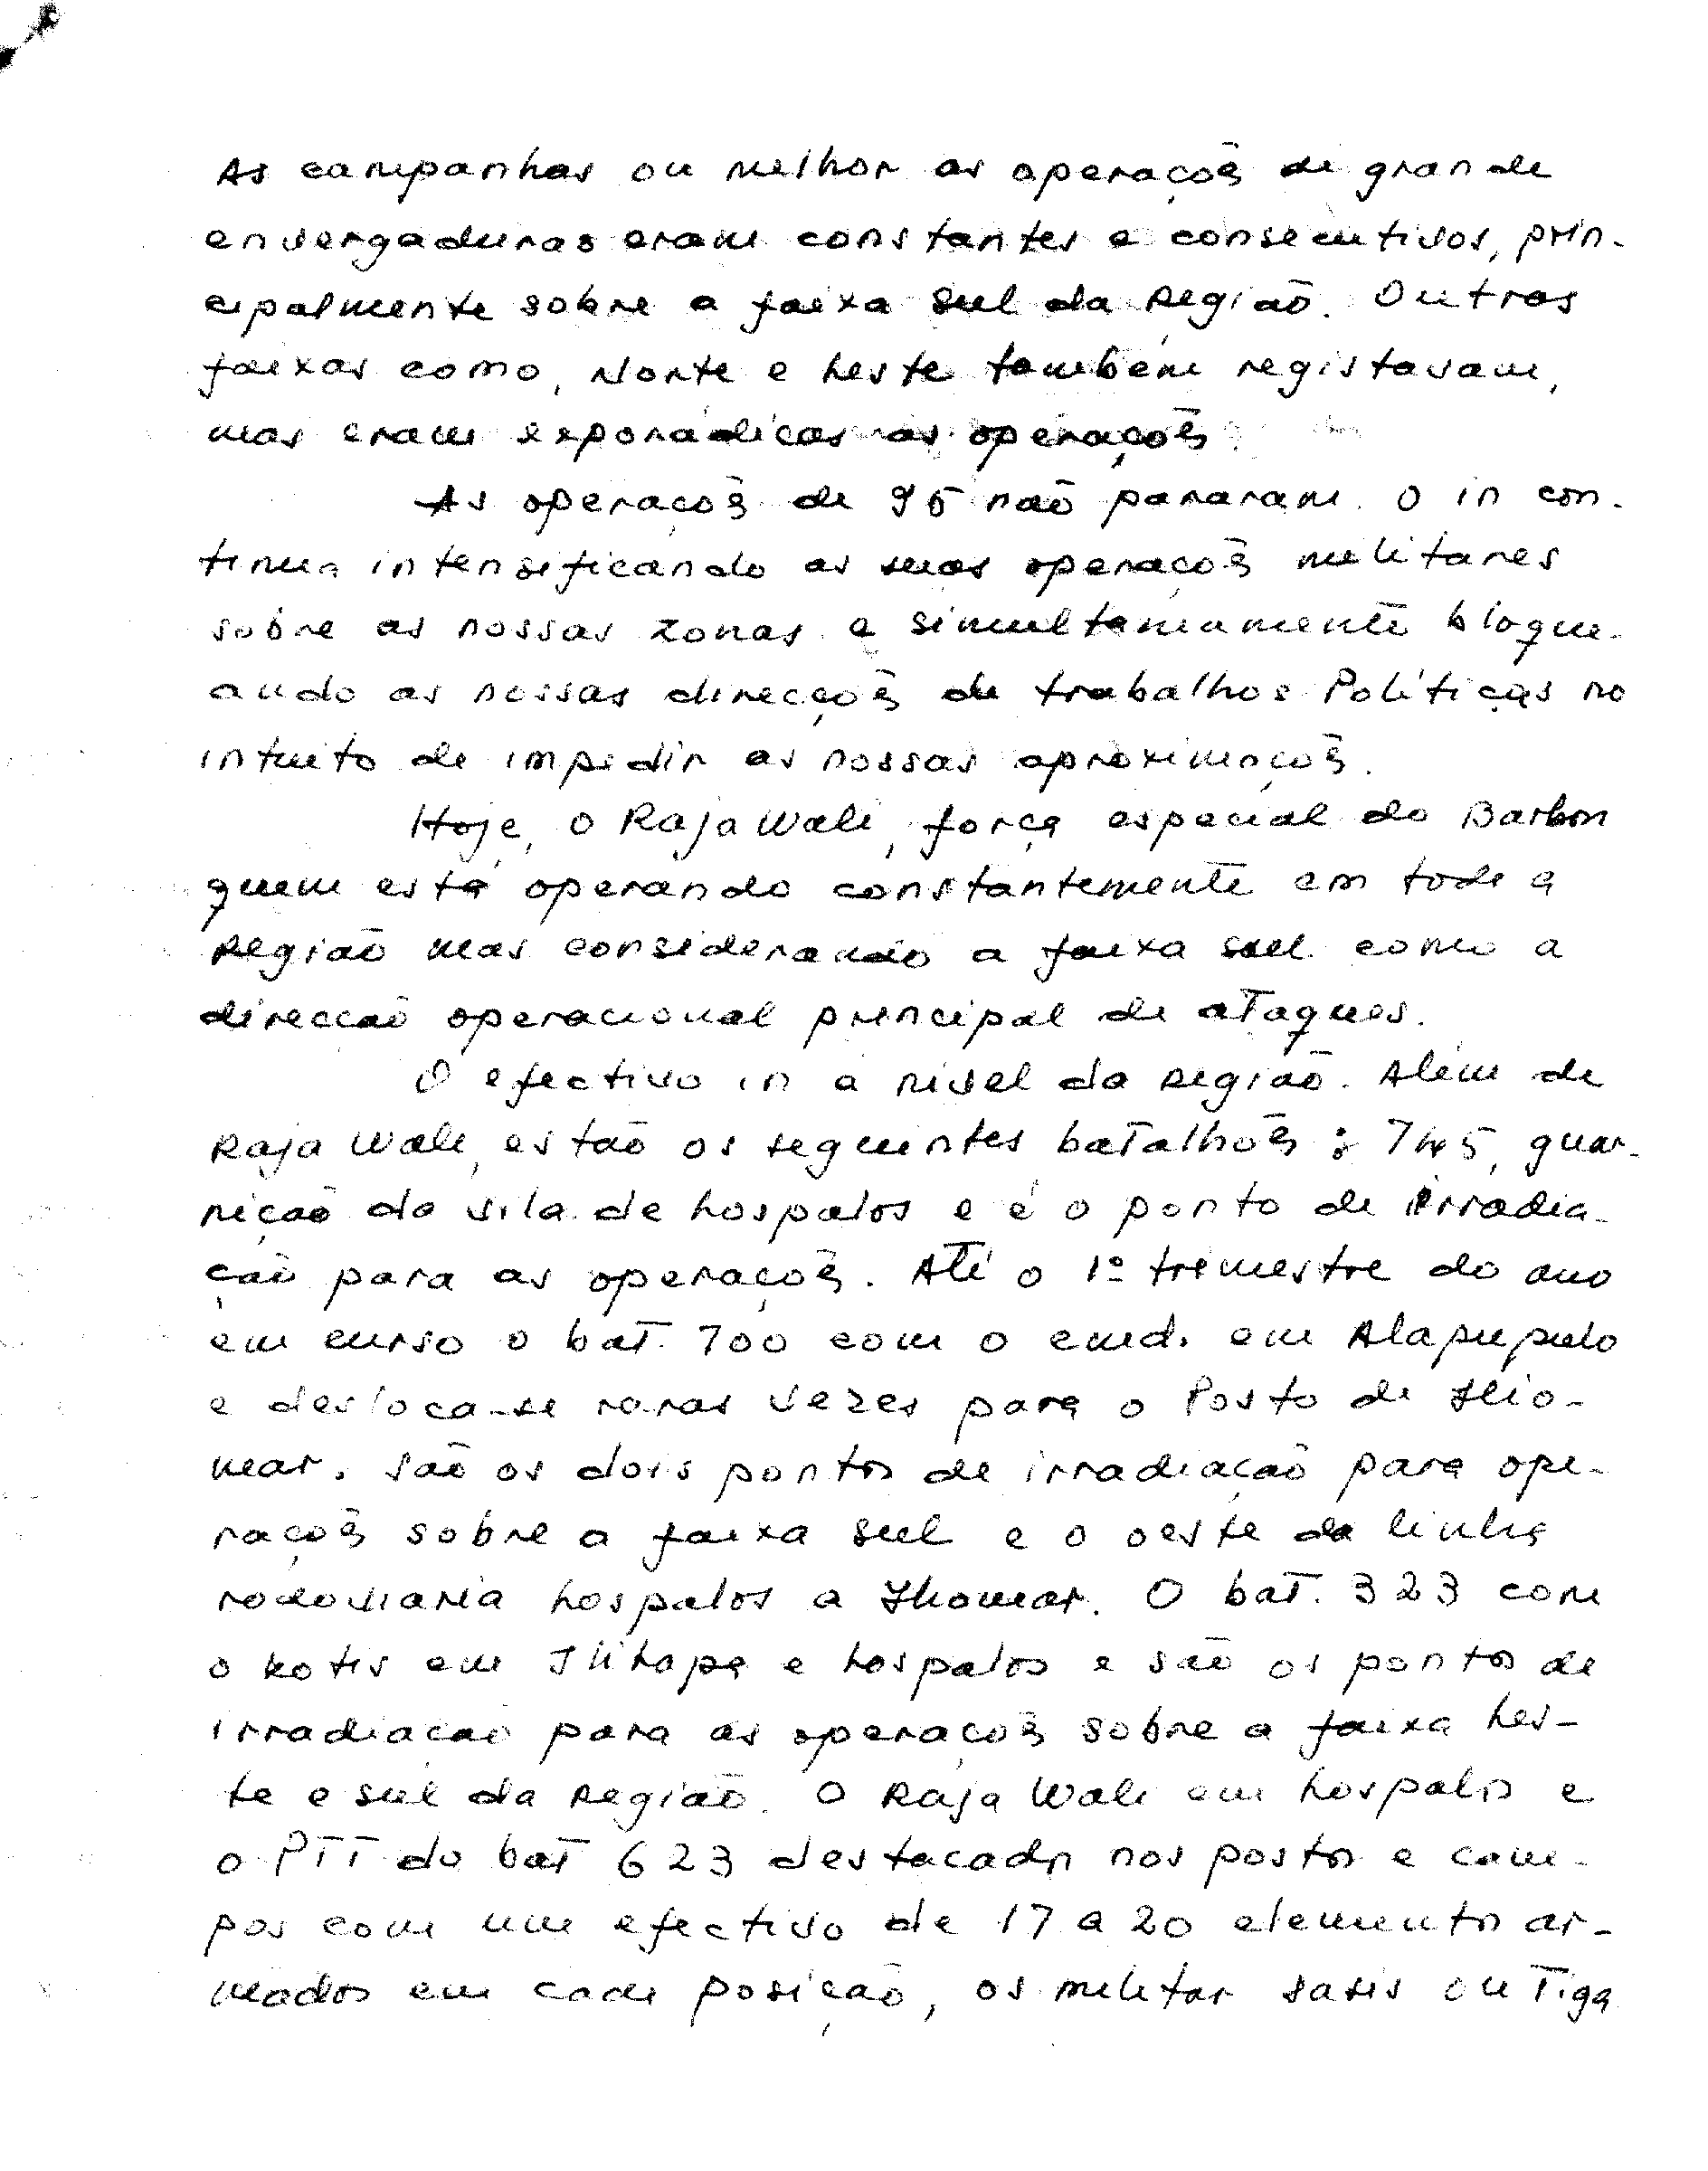 As campanhas ou melhor as operações de grande
envergaduras eram constantes e consecutivos, prin-
cipalmente sobre a faixa sul da Região. Outras
faixas como, Norte e Leste também registavam,
mas eram exporádicas as operações.
As operações de 95 não pararam. O in con-
tinua intensificando as suas operações militares
sobre as nossas zonas e simultaneamente bloque-
ando as nossas direcções de trabalhos Políticas no
intuito de impedir as nossas aproximações.
Hoje, o Raja Wali, força especial do Barbon
quem está operando constantemente em toda a
Região mas considerando a faixa sul como a
direcção operacional principal de ataques.
O efectivo in a nível da Região. Além de
Raja Wali, estão os seguintes batalhões: 745, guar-
nição da vila de Lospalos e é o ponto de irradia-
ção para as operações. Até o 1º trimestre do ano
em curso o bat. 700 com o cmd. em Alapupulo
e desloca-se raras vezes para o Posto de Ilio-
mar. São os dois pontos de irradiação para ope-
rações sobre a faixa sul e o oeste da linha
rodoviária Lospalos a Iliomar. O bat. 323 com
o kotis em Tlihapa e Lospalos e são os pontos de
irradiação para as operações sobre a faixa Les-
te e sul da Região. O Raja Wali em Lospalos e
o PTT do bat 623 destacados nos postos e cam-
pos com um efectivo de 17 a 20 elementos ar-
mados em cada posição, os militar satis ou Tiga